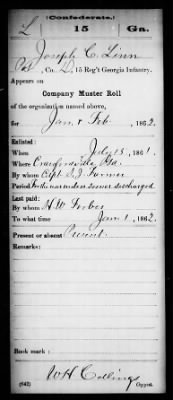 (Confederate.)
L 15 Ga.
Joseph C. Linn
Pvt, Co. D, 15 Reg't Georgia Infantry.
Appears on
Company Muster Roll
of the organization named above,
for Jan & Feb, 1862.
Enlisted:
When July 15, 1861.
Where Crawfordville Ga.
By whom Capt. S. J. Farmer
Period for the war unless sooner discharged
Last paid:
By whom H. W. Forbes
To what time Jan 1, 1862.
Present or absent Present
Remarks:
Book mark:
(642) W H Collings
Copyist.